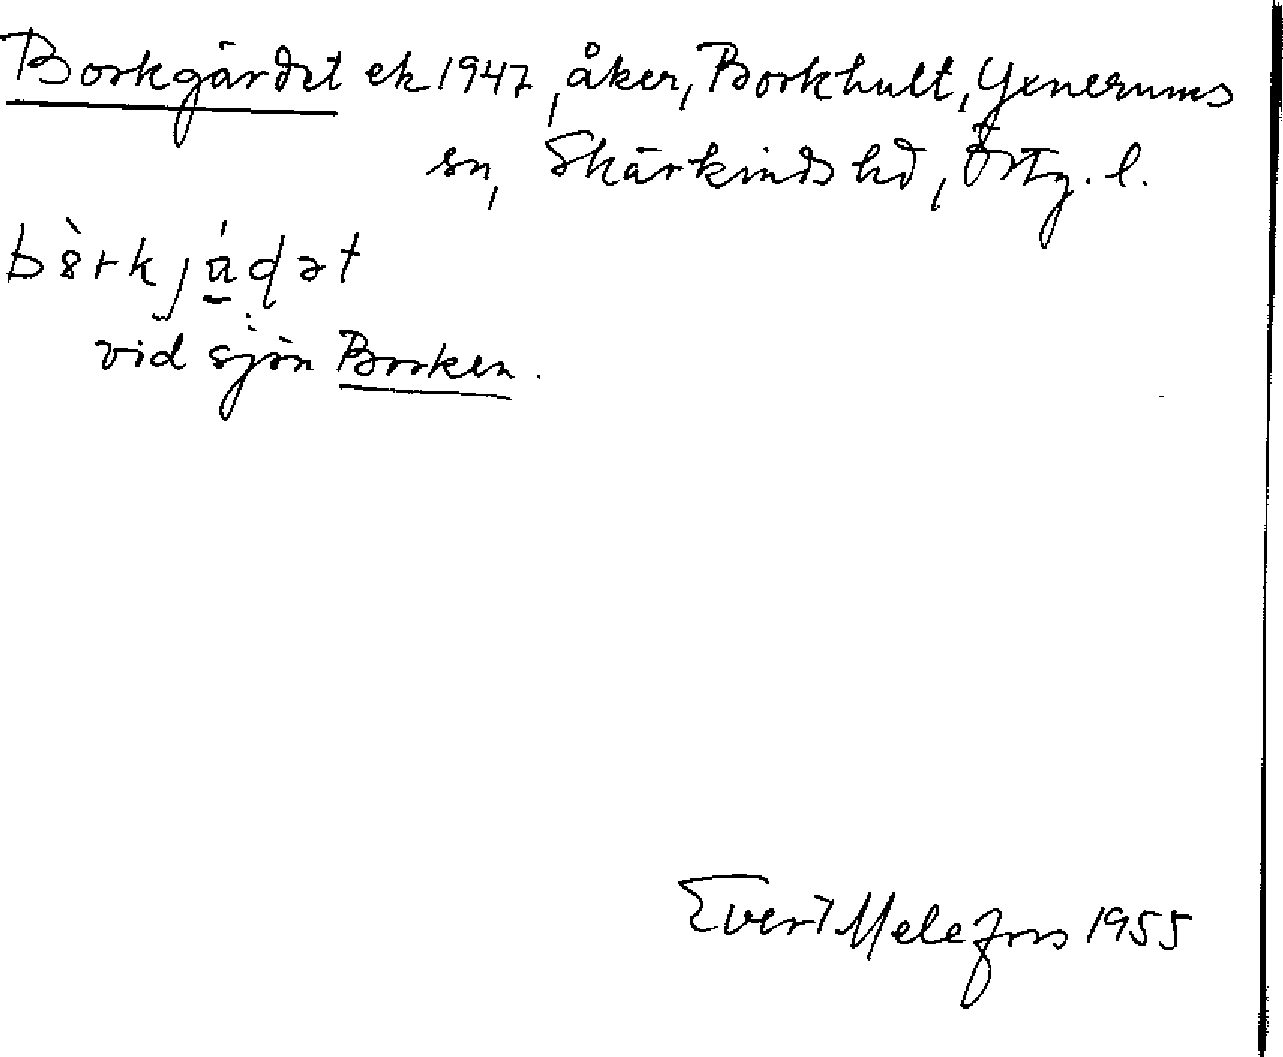 Borkgärdet ek 1947, åker, Borkhult, Yxnerums
sn, Skärkinds hd, Östg. l.
vid sjön Borken.
Evert Melefors 1955